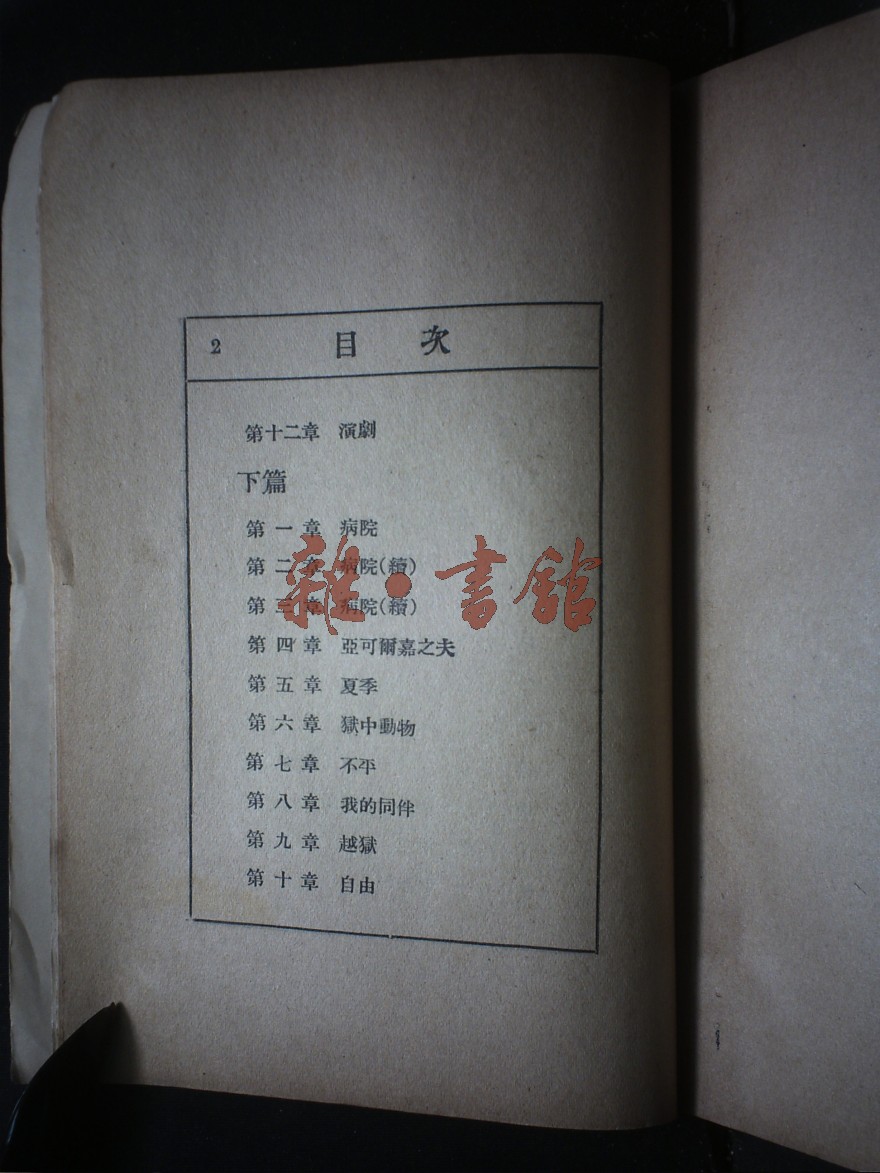 2 目次
第十二章 演劇
下篇
第一章 病院
第二章 病院(續)
第三章 病院(續)
第四章 亞可爾嘉之夫
第五章 夏季
第六章 獄中動物
第七章 不平
第八章 我的同伴
第九章 越獄
第十章 自由
雜·書館